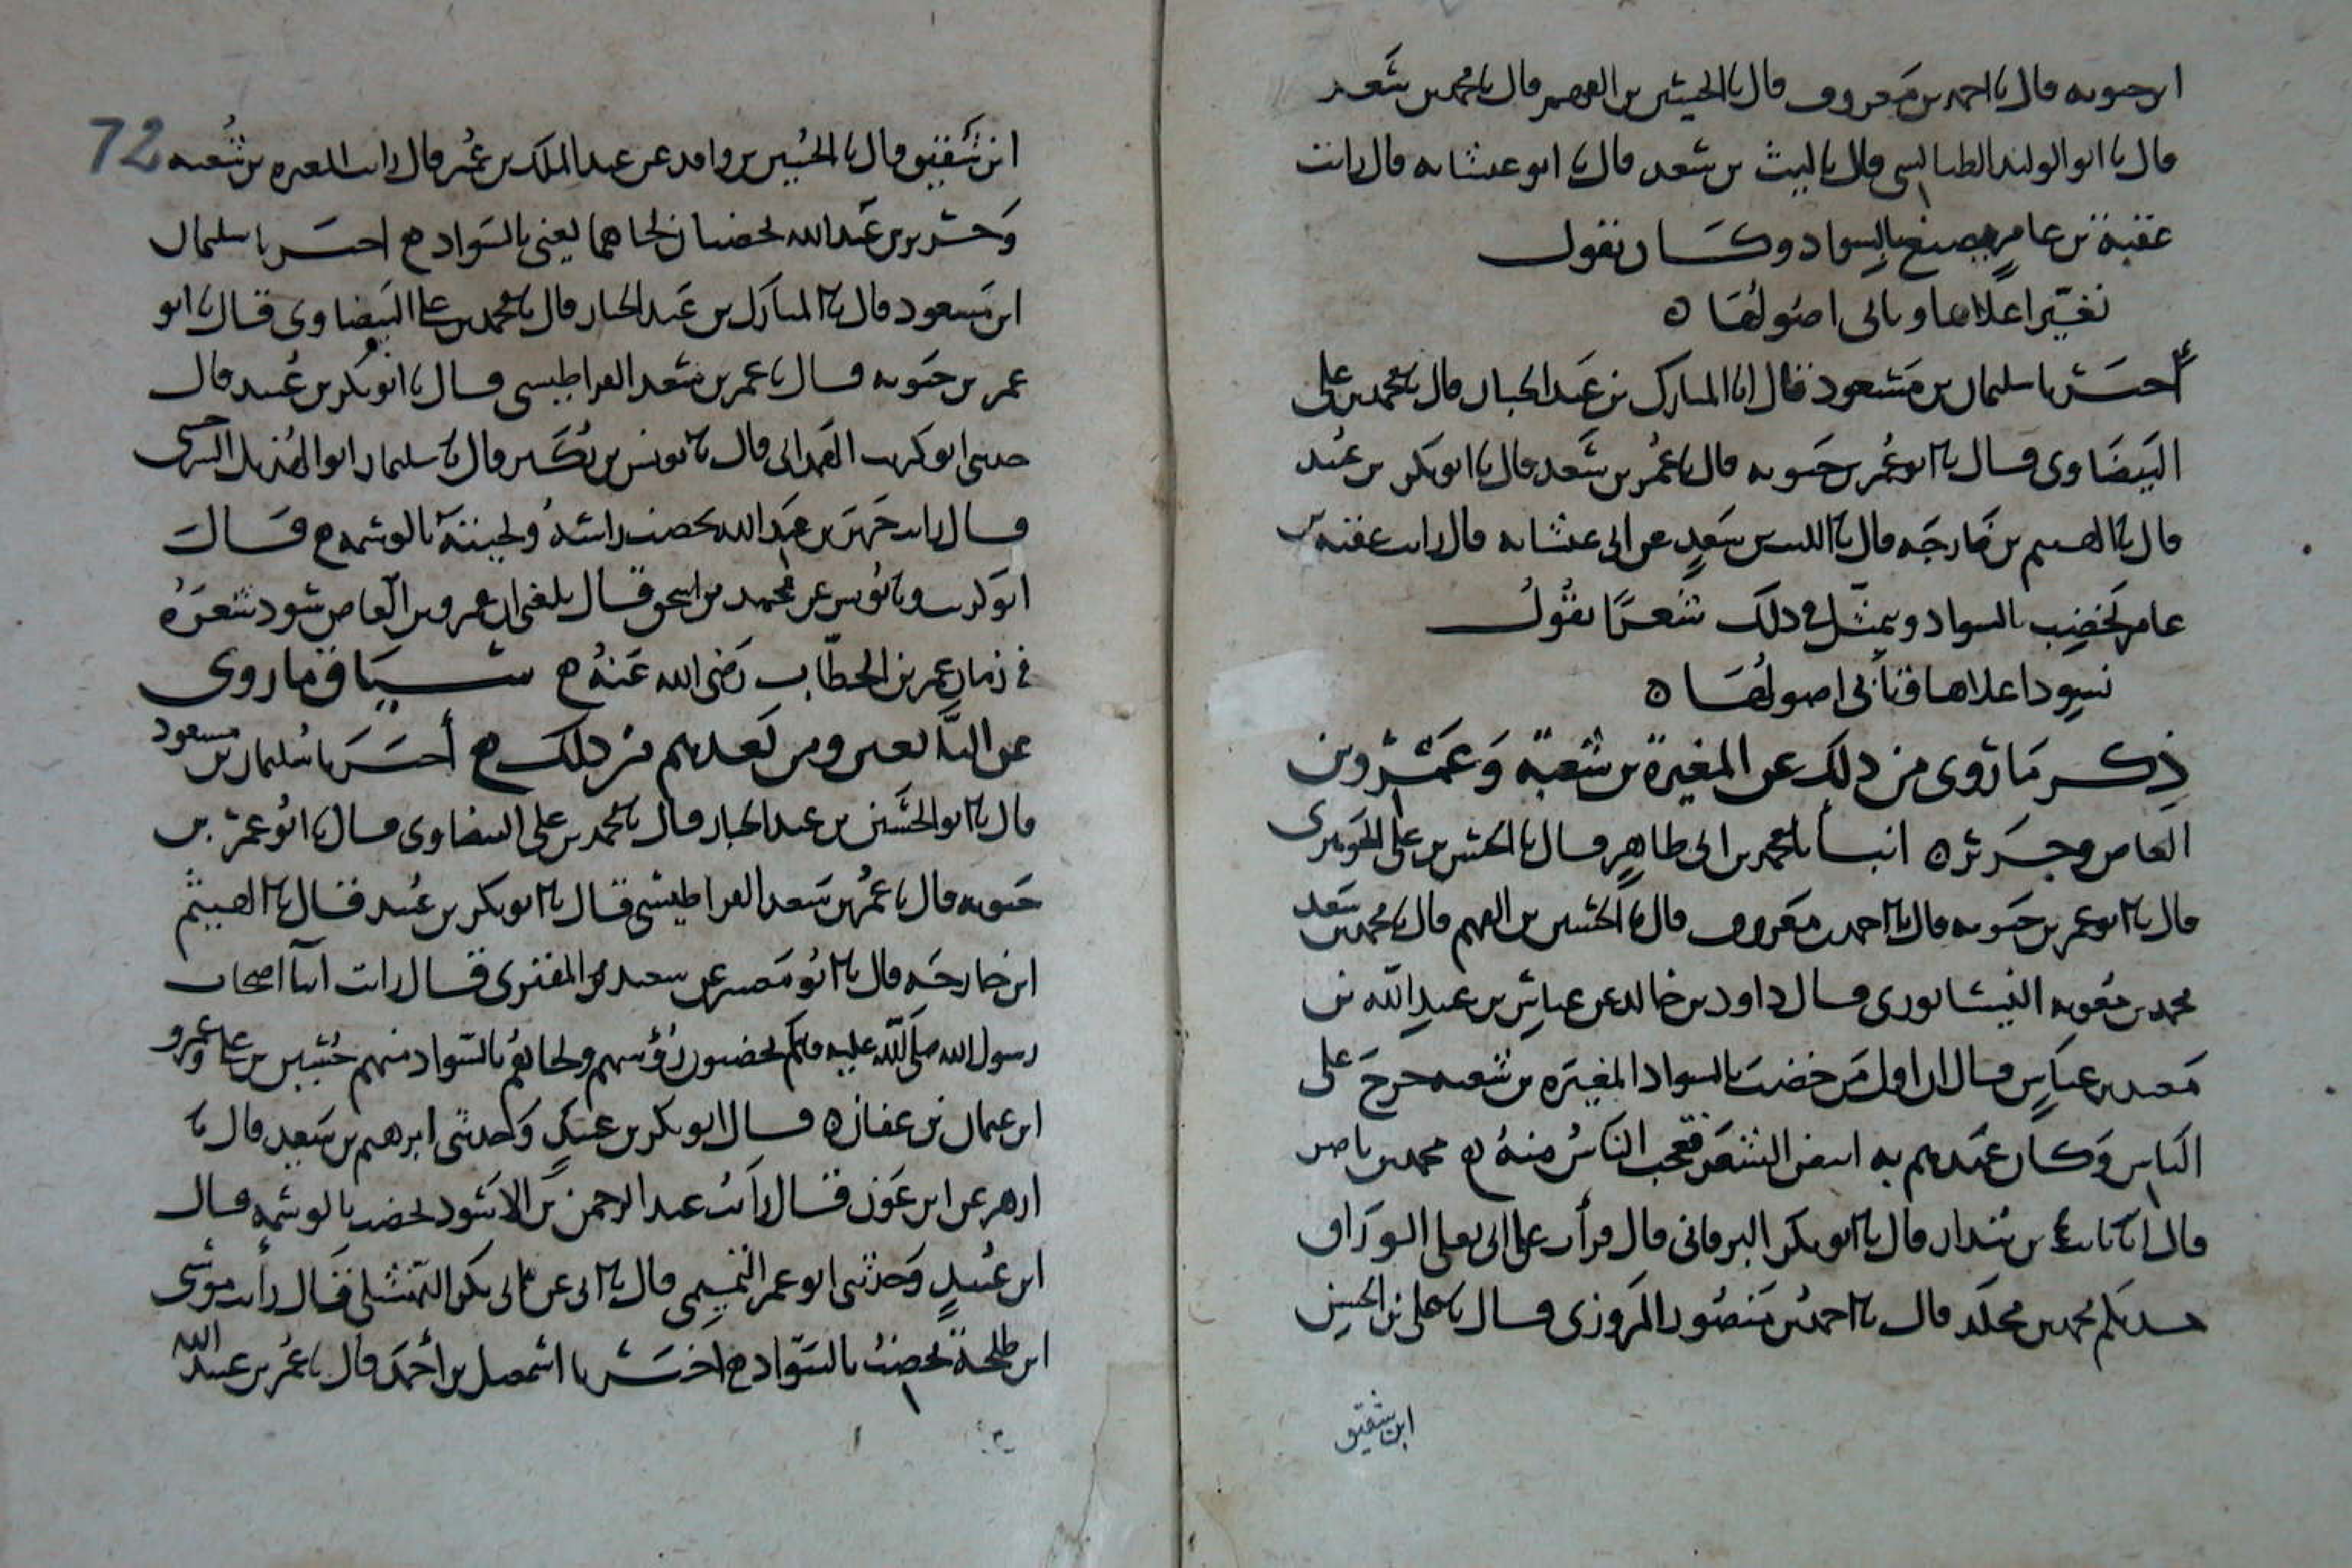 ابن حيويه قال نا احمد بن معروف قال نا الحسين بن الفهم قال نا محمد بن سعد
قال نا ابو الوليد الطيالسي قال نا ليث بن سعد قال نا ابو عشانه قال رايت
عقبة بن عامر يصبغ بالسواد وكان يقول
نغير اعلاها وتابى اصولها ه
أخبرنا سليمان بن مسعود قال انا المبارك بن عبد الجبار قال نا محمد بن علي
البيضاوي قال نا ابو عمر بن حيويه قال نا عمر بن سعد قال نا ابو بكر بن عبيد
قال نا الهيثم بن خارجه قال نا الليث بن سعد عن ابي عشانه قال رايت عقبه بن
عامر يخضب بالسواد ويتمثل في ذلك شعرا يقول
نسود اعلاها وتأبى اصولها ه
ذكر ما روي من ذلك عن المغيرة بن شعبة وعمرو بن
العاص وجرير ه انبانا محمد بن ابي طاهر قال نا الحسن بن علي الجوهري
قال نا ابو عمر بن حيويه قال نا احمد بن معروف قال نا الحسين بن الفهم قال نا محمد بن سعد
محمد بن معويه النيسابوري قال داود بن خالد عن عباس بن عبد الله بن
معبد بن عباس قال ان اول من خضب بالسواد المغيره بن شعبه خرج على
الناس وكان عهدهم به ابيض الشعر فعجب الناس منه ه محمد بن ناصر
قال انا ثابت بن بندار قال نا ابو بكر البرقاني قال قرأت على ابي يعلى الوراق
حدثكم محمد بن مخلد قال نا احمد بن منصور المروزي قال نا علي بن الحسن
ابن شقيق
72
ابن شقيق قال نا الحسين بن واقد عن عبد الملك بن عمير قال رايت المغيره بن شعبه
وجرير بن عبد الله يخضبان لحاهما يعني بالسواد ه اخبرنا سليمان
ابن مسعود قال نا المبارك بن عبد الجبار قال نا محمد بن علي البيضاوي قال نا ابو
عمر بن حيويه قال نا عمر بن سعد القراطيسي قال نا ابو بكر بن عبيد قال
حدثني ابو كريب الهمداني قال نا يونس بن بكير قال نا سليمان ابو الهذيل
قال رايت جرير بن عبد الله يخضب راسه ولحيته بالوسمه ه قال
ابو كريب ونا يونس عن محمد بن اسحق قال بلغني ان عمرو بن العاص سود شعره
في زمان عمر بن الخطاب رضي الله عنه ه سياق ما روي
عن التابعين ومن بعدهم من ذلك ه أخبرنا سليمان بن مسعود
قال نا ابو الحسين بن عبد الجبار قال نا محمد بن علي البيضاوي قال نا ابو عمر بن
حيويه قال نا عمر بن سعد القراطيسي قال نا ابو بكر بن عبيد قال نا الهيثم
ابن خارجه قال نا ابو عن سعيد المقبري قال رايت ابنا اصحاب
رسول الله صلى الله عليه وسلم يخضبون رؤسهم ولحاهم بالسواد منهم حسين بن علي وعمرو
ابن عثمان بن عفان ه قال ابو بكر بن عبيد وحدثني ابرهيم بن سعيد قال نا
ازهر عن ابن عون قال رايت عبد الرحمن بن الاسود يخضب بالوسمه قال
ابن عبيد وحدثني ابو عمر التميمي قال نا ابي عن ابي بكر النهشلي قال رأيت موسى
ابن طلحة يخضب بالسواد ه اخبرنا اسمعيل بن أحمد قال نا عمر بن عبيد الله